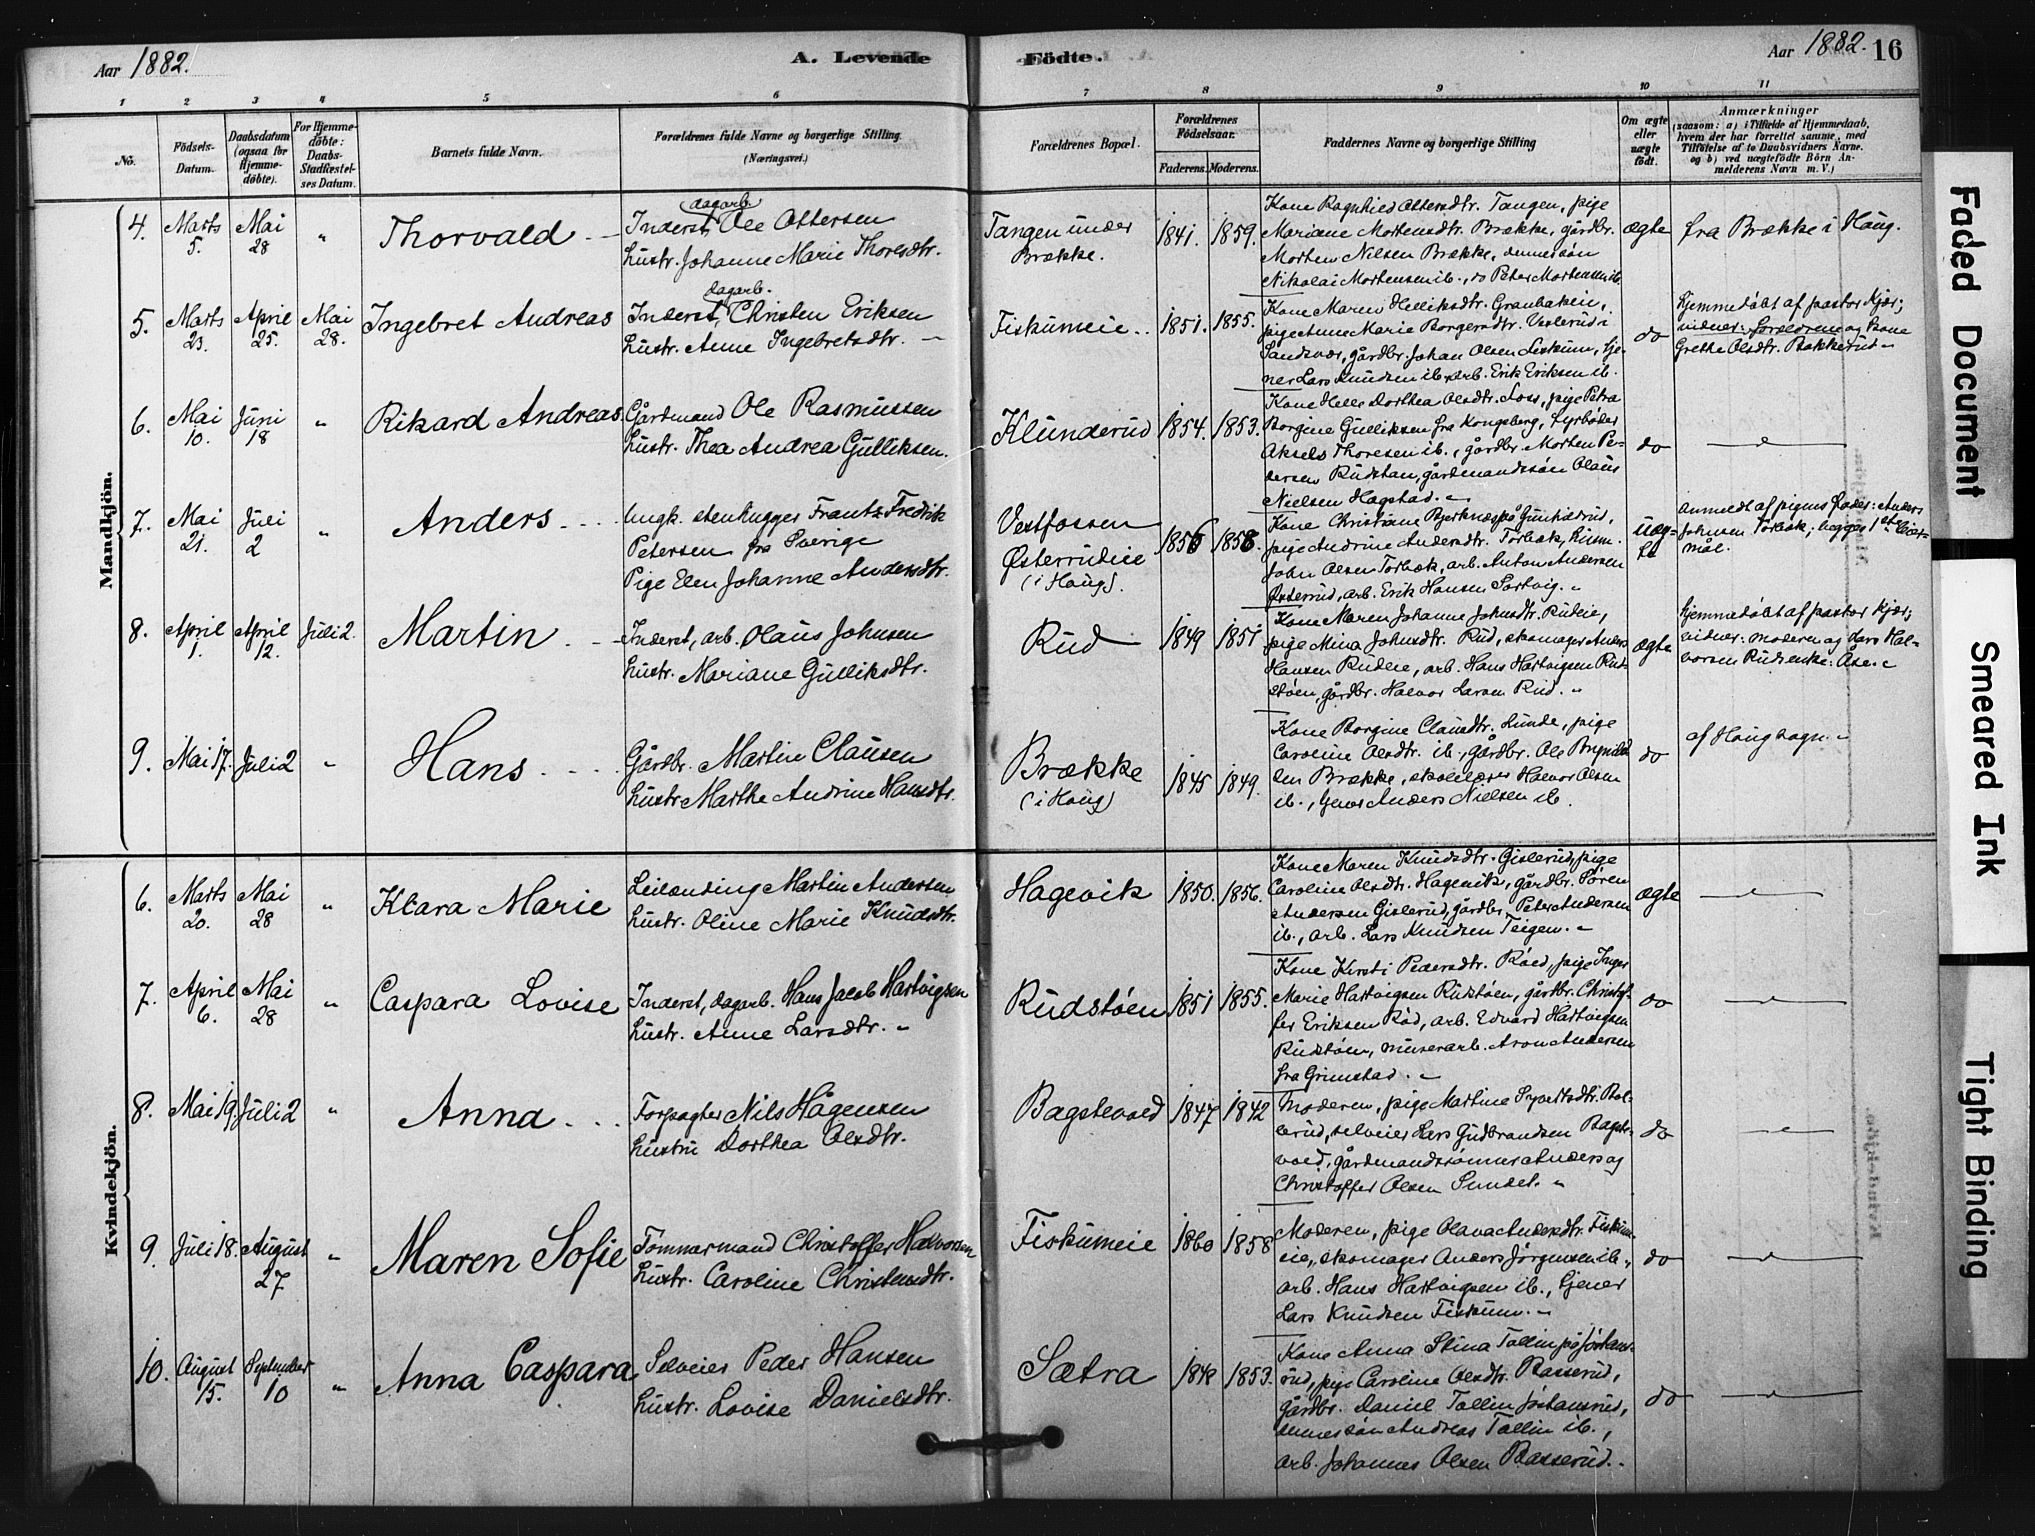 Aar 1882.
A. Levende
Födte.
Aar 1882. 16
1 2 3 4 5 6 7 8 9 10 11
No.
Födsels-
Datum.
Daabsdatum
(ogsaa for
Hjemme-
döbte).
For Hjemme-
döbte:
Daabs-
Stadfæstel-
ses Datum.
Barnets fulde Navn.
Forældrenes fulde Navne og borgerlige Stilling.
(Næringsvei.)
Forældrenes Bopæl.
Forældrenes
Födselsaar.
Faderens. Moderens.
Faddernes Navne og borgerlige Stilling
Om ægte
eller
uægte
födt.
Anmærkninger
(saasom: a) i Tilfælde af Hjemmedaab,
hvem der har forrettet samme, med
Tilföielse af to Daabsvidners Navne.
og b) ved uægtefödte Börn An-
melderens Navn m. V.)
Mandkjön.
4. Marts 5. Mai 28 " Thorvald
dagarb.
Inderst, Ole Ottersen
Hustr. Johanne Marie Thoresdtr.
Tangen under
Brække.
1841. 1859.
Kone Ragnhild Ottersdtr. Tangen, pige
Mariane Mortensdtr. Brække, gårdbr.
Morten Nilsen Brække, dennes søn
Nikolai Mortensen ib., do Peter Mortensen ib.
ægte
fra Brække i Haug.
5. Marts 23. April 25. Mai 28. Ingebret Andreas
dagarb.
Inderst, Christen Eriksen
Hustr. Anne Ingebretsdtr.
Fiskumeie.
1851. 1855.
Kone Maren Helliksdtr. Granbakeie,
pige Anne Marie Borgersdtr. Veslerud i
Sandsvær, gårdbr. Johan Olsen Fiskum, tje-
ner Lars Knudsen ib., arb. Erik Eriksen ib.
do
Hjemmedøbt af pastor Kjær;
vidner: forældrene og kone
Grethe Olsdtr. Bakkerud
6. Mai 10. Juni 18 " Rikard Andreas
Gårdmand Ole Rasmussen
Hustr. Thea Andrea Gulliksen.
Klunderud
1854. 1853.
Kone Helle Dorthea Olsdtr. Loss, pige Petra
Borgine Gulliksen fra Kongsberg, fyrbøder
Aksel Thoresen ib., gårdbr. Morten Pe-
dersen Rudstan, gårdmandssøn Olaus
Nielsen Hagstad.
do
7. Mai 21. Juli 2 " Anders
Ungk. stenhugger Frantz Fredrik
Petersen fra Sverige
Pige Elen Johanne Andersdtr.
Vestfossen
Østerrudeie
(i Haug).
1856 1858.
Kone Christiane Bjerknæs på Gunhildrud,
pige Andrine Andersdtr. Torbæk, husm.
John Olsen Torbæk, arb. Anton Andersen
Østerud, arb. Erik Hansen Sortvig.
uæg-
te
Anmeldt af pigens fader: Anders
Johnsen Torbæk; begges 1ste leier-
mål.
8. April 1. April 12. Juli 2. Martin
Inderst, arb. Olaus Johnsen
Hustr. Mariane Gulliksdtr.
Rud
1849 1851
Kone Maren Johanne Johnsdtr. Rudeie,
pige Mina Johnsdtr. Rud, skomager Anders
Hansen Rudeie, arb. Hans Hartvigsen Rud-
støen, gårdbr. Halvor Larsen Rud.
ægte
Hjemmedøbt af pastor Kjær;
vidner: moderen og Lars Hal-
vorsens Rudsenke: Åse.
9. Mai 17. Juli 2 " Hans
Gårdbr. Martin Clausen
Hustr. Marthe Andrine Hansdtr.
Brække
(i Haug)
1845 1849.
Kone Borgine Clausdtr. Hunde, pige
Caroline Olsdtr. ib., gårdbr. Ole Brynild-
sen Brække, skolelærer Halvor Olsen
ib., Anders Nielsen ib.
do
af Haug sogn.
Kvindekjön.
6. Marts 20. Mai 28 " Klara Marie
Leilænding Martin Andersen
Hustr. Oline Marie Knudsdtr.
Hagevik
1850. 1856.
Kone Maren Knudsdtr. Gislerud, pige
Caroline Olsdtr. Hagevik, gårdbr. Søren
Andersen Gislerud, gårdbr. Peter Andersen
ib., arb. Lars Knudsen Teigen.
ægte
7. April 6. Mai 28 " Caspara Lovise
Inderst, dagarb. Hans Jacob Hartvigsen
Hustr. Anne Larsdtr.
Rudstøen
1851 1855.
Kone Kirsti Pedersdtr. Røed, pige Inger
Marie Hartvigsen Rudstøen, gårdbr. Christof-
fer Eriksen Rød, arb. Edvard Hartvigsen
Rudstøen, murerarb. Aron Andersen
fra Grimstad.
do
8. Mai 19. Juli 2 " Anna
Forpagter Nils Hågensen
Hustru Dorthea Olsdtr.
Bagstevold
1847 1842
Moderen, pige Martine Syvertsdtr. Bol-
lerud, selveier Lars Gudbrandsen Bagste-
vold, gårdmandssønner Anders og
Christoffer Olsen Sundet.
do
9. Juli 18. August 27 " Maren Sofie
Tømmermand Christoffer Halvorsen
Hustr. Caroline Christensdtr.
Fiskumeie
1860 1858
Moderen, pige Olava Andersdtr. Fiskum-
eie, skomager Anders Jørgensen ib.,
arb. Hans Hartvigsen ib., tjener
Lars Knudsen Fiskum.
do
10. August 15. September 10 " Anna Caspara
Selveier Peder Hansen
Hustr. Lovise Danielsdtr.
Sætra
1848 1853.
Kone Anna Stina Tollin på Jøstans-
rud, pige Caroline Olsdtr. Basserud,
gårdbr. Daniel Tollin Jøstansrud,
dennes søn Andreas Tollin ib.,
arb. Johannes Olsen Basserud.
do
Faded Document
Smeared Ink
Tight Binding